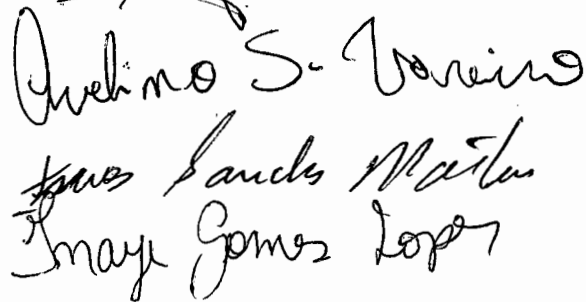 Avelino S. Vareiro
Sanches Martins
Inaye Gomes Lopes